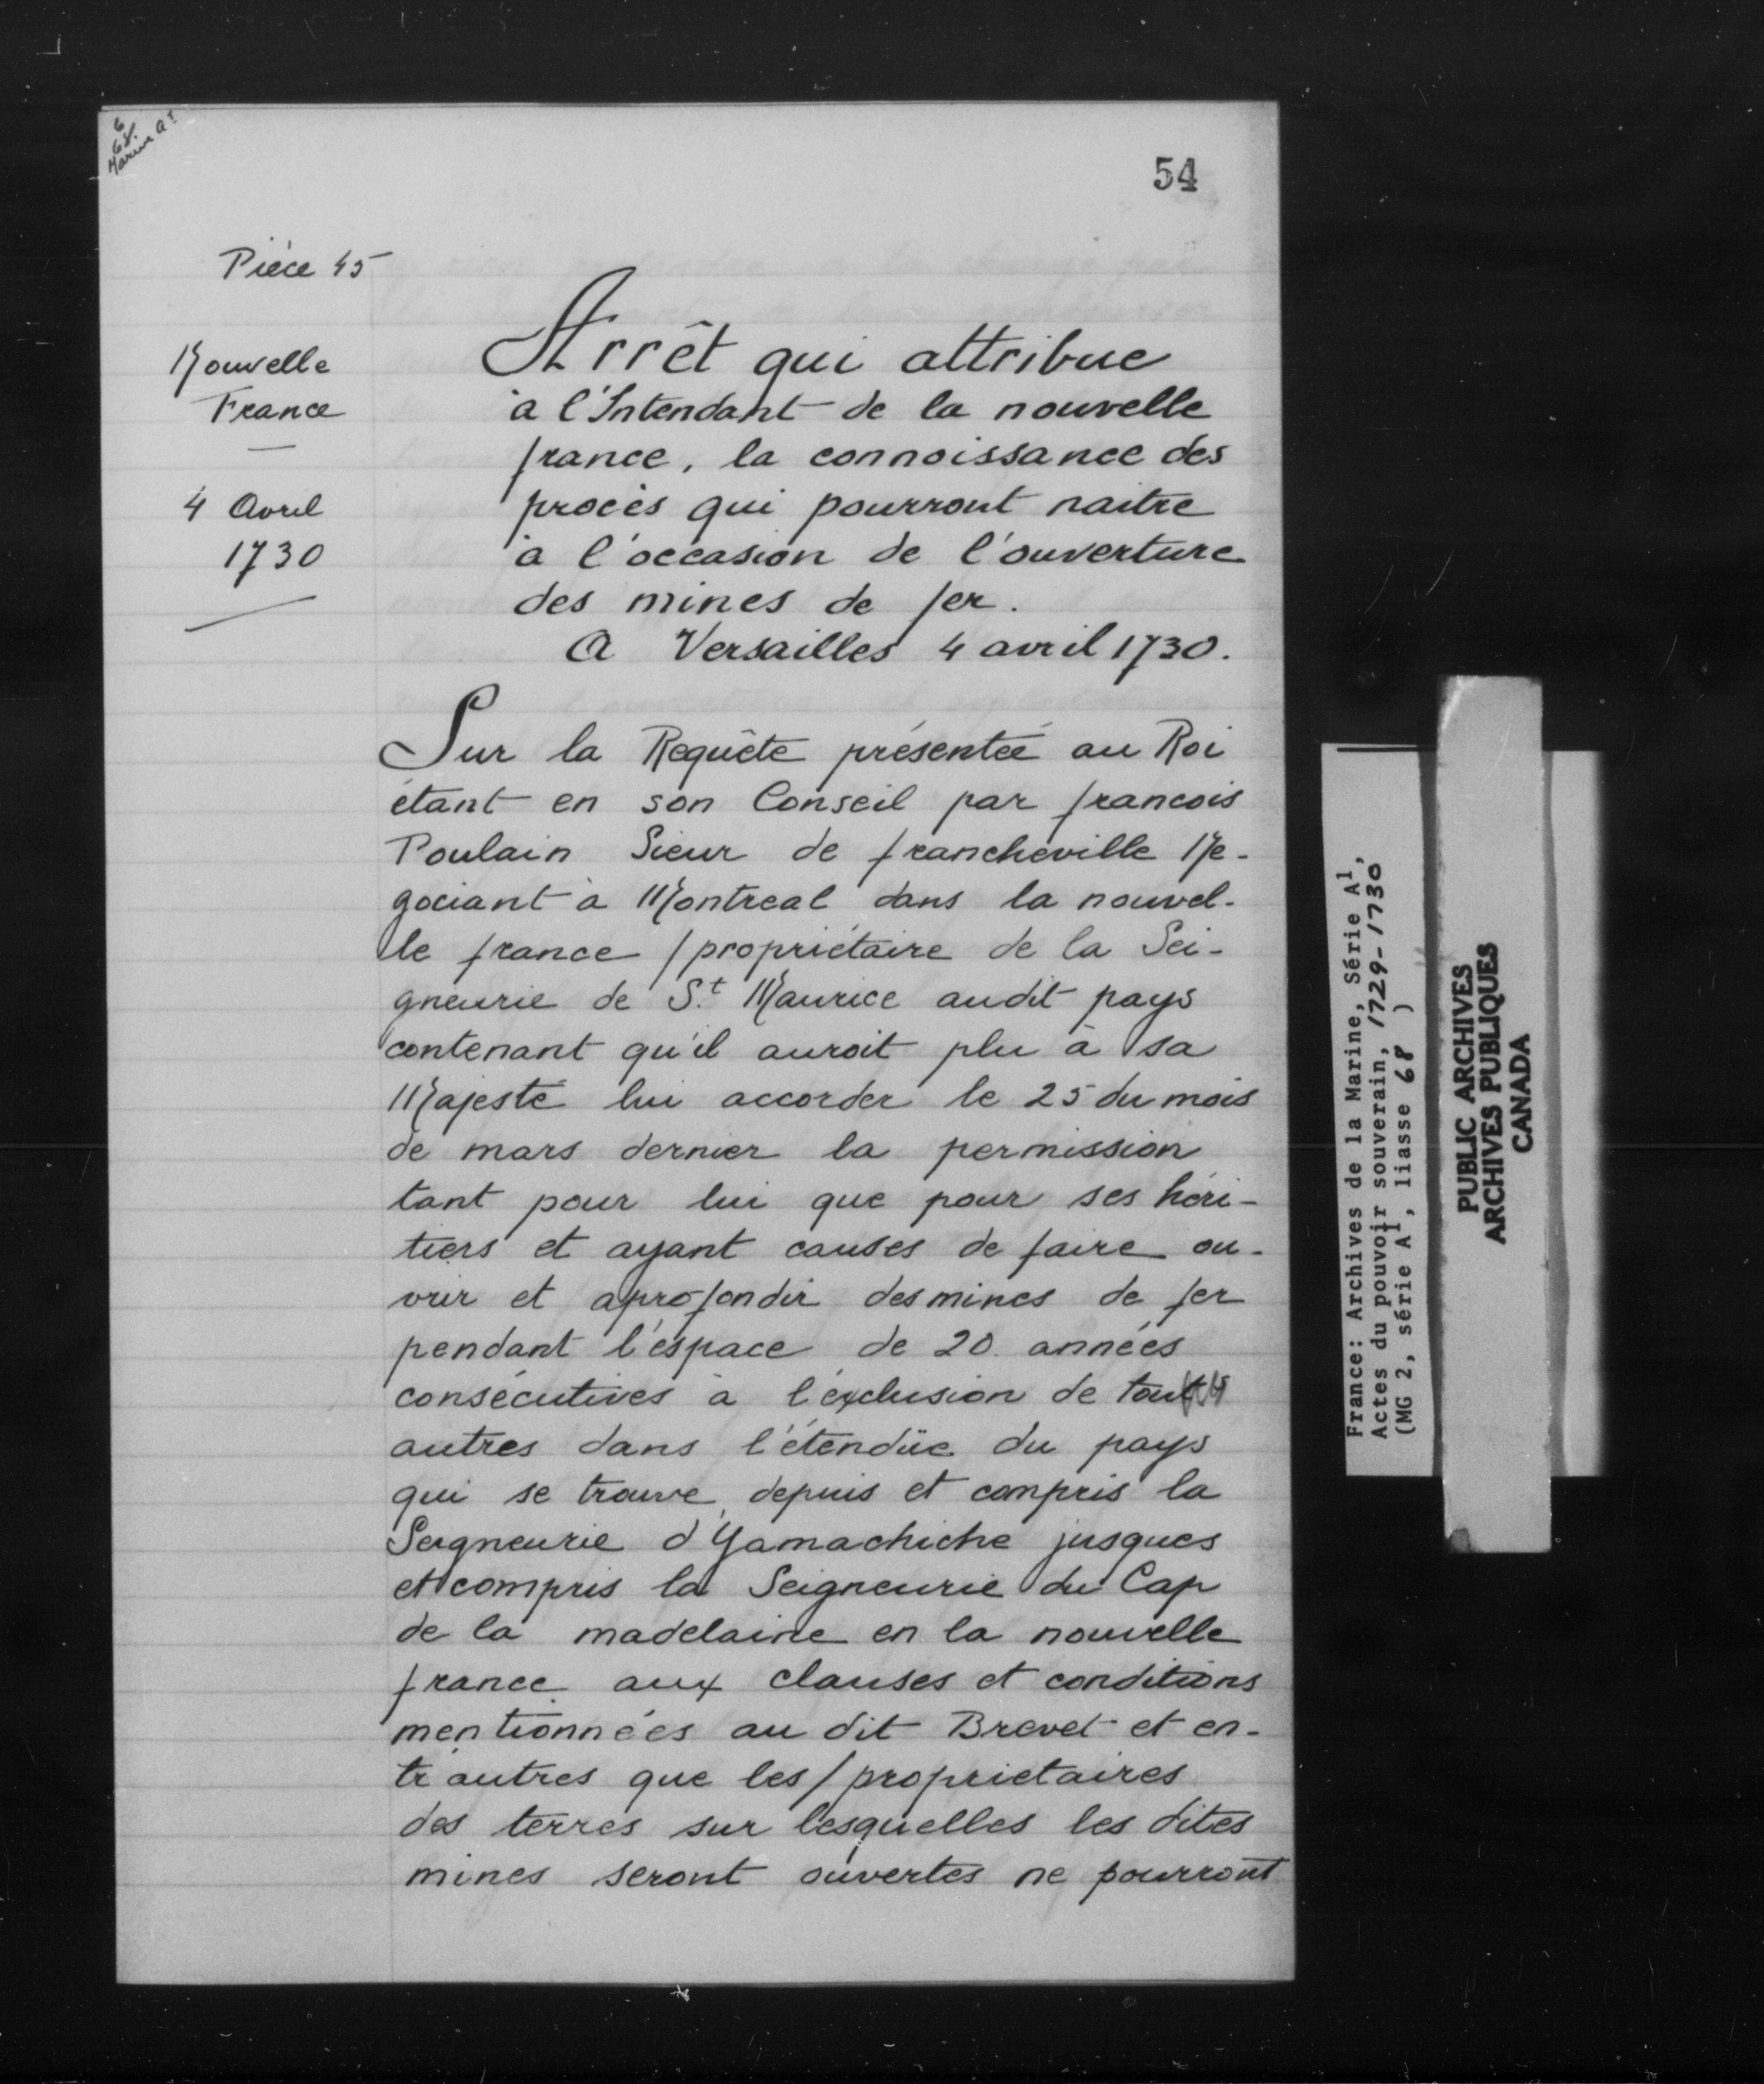 6
68.
Marine A¹
54
Pièce 45
Nouvelle
France
4 Avril
1730
Arrêt qui attribue
à l'Intendant de la nouvelle
france, la connoissance des
procès qui pourront naitre
à l'occasion de l'ouverture
des mines de fer.
A Versailles 4 avril 1730.
Sur la Requête présentée au Roi
étant en son Conseil par francois
Poulain Sieur de francheville Ne-
gociant à Montreal dans la nouvel-
le france / propriétaire de la Sei-
gneurie de S.t Maurice audit pays
contenant qu'il auroit plu à sa
Majesté lui accorder le 25 du mois
de mars dernier la permission
tant pour lui que pour ses héri-
tiers et ayant causes de faire ou-
vrir et aprofondir des mines de fer
pendant l'espace de 20. années
consécutives à l'exclusion de tout
autres dans l'étendüe du pays
qui se trouve depuis et compris la
Seigneurie d'Yamachiche jusques
et compris la Seigneurie du Cap
de la madelaine en la nouvelle
france aux clauses et conditions
mentionnées au dit Brevet et en-
tr'autres que les / proprietaires
des terres sur lesquelles les dites
mines seront ouvertes ne pourront
France: Archives de la Marine, Série A1,
Actes du pouvoir souverain, 1729-1730
(MG 2, série A1, liasse 68 )
PUBLIC ARCHIVES
ARCHIVES PUBLIQUES
CANADA